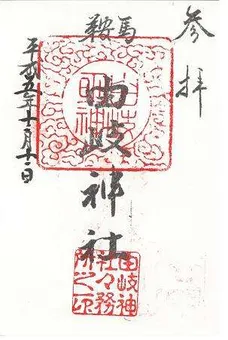 参拝
鞍馬
由岐
明神
由岐神社
由岐神
社々務
所之印
平成五年十月十二日